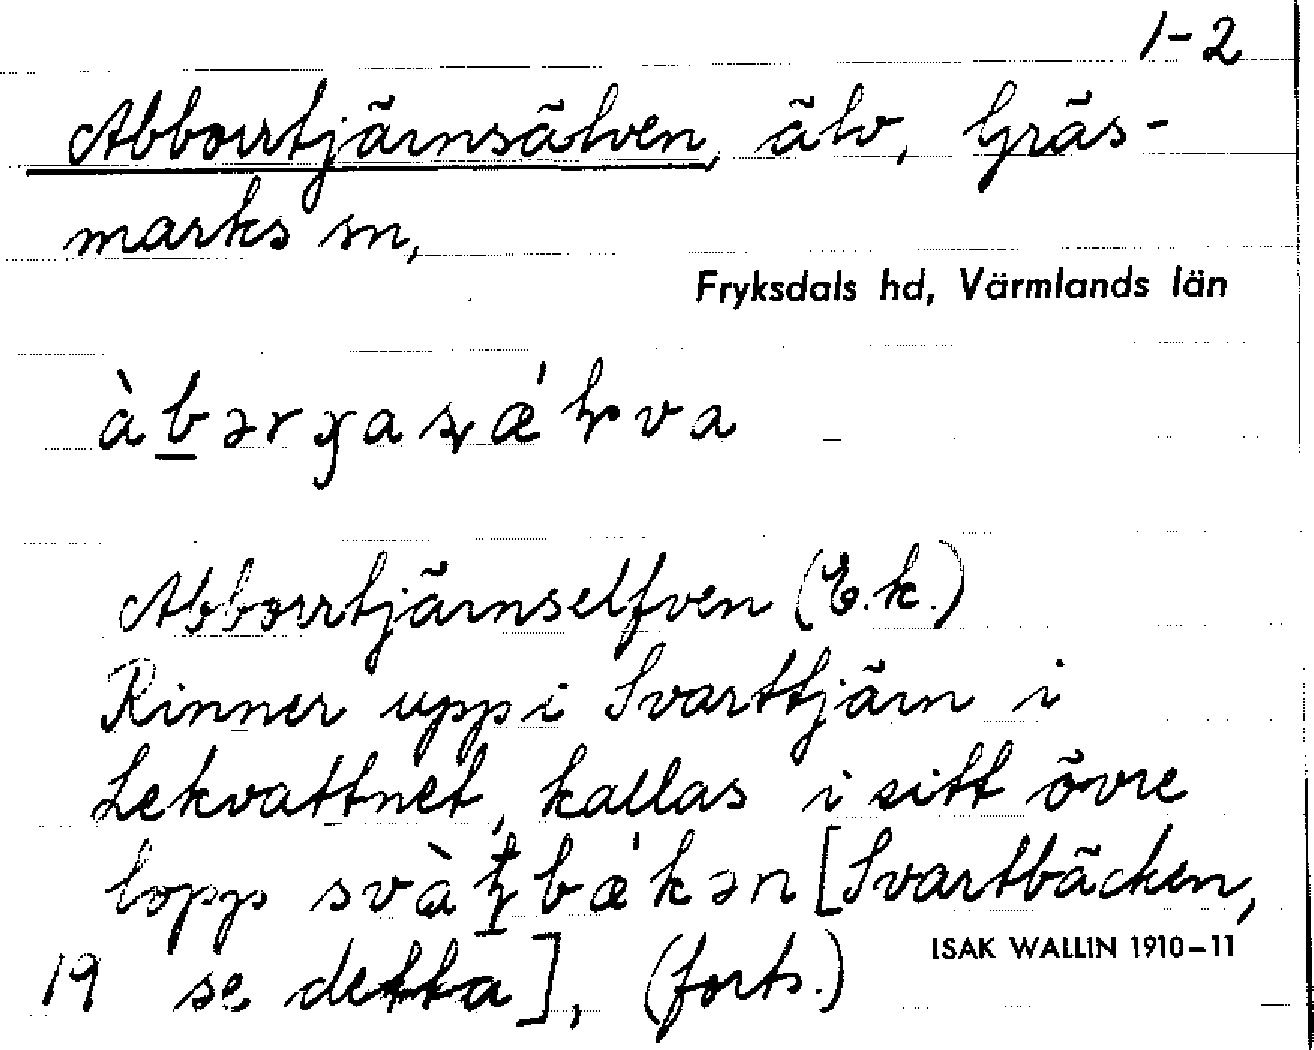 1-2
Abborrtjärnsälven, älv, Gräs-
marks sn,
Fryksdals hd, Värmlands län
Abborrtjärnselfven (E.k.)
Rinner upp i Svarttjärn i
Lekvattnet, kallas i sitt övre
lopp [Svartbäcken,
ISAK WALLIN 1910-11
19 se detta], (forts.)